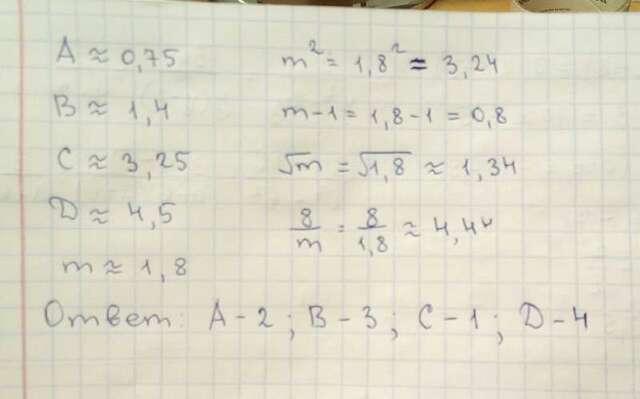 A ≈ 0,75
B ≈ 1,4
C ≈ 3,25
D ≈ 4,5
m ≈ 1,8
m² = 1,8² = 3,24
m-1 = 1,8-1 = 0,8
√m = √1,8 ≈ 1,34
8/m = 8/1,8 ≈ 4,44
Ответ: A-2; B-3; C-1; D-4